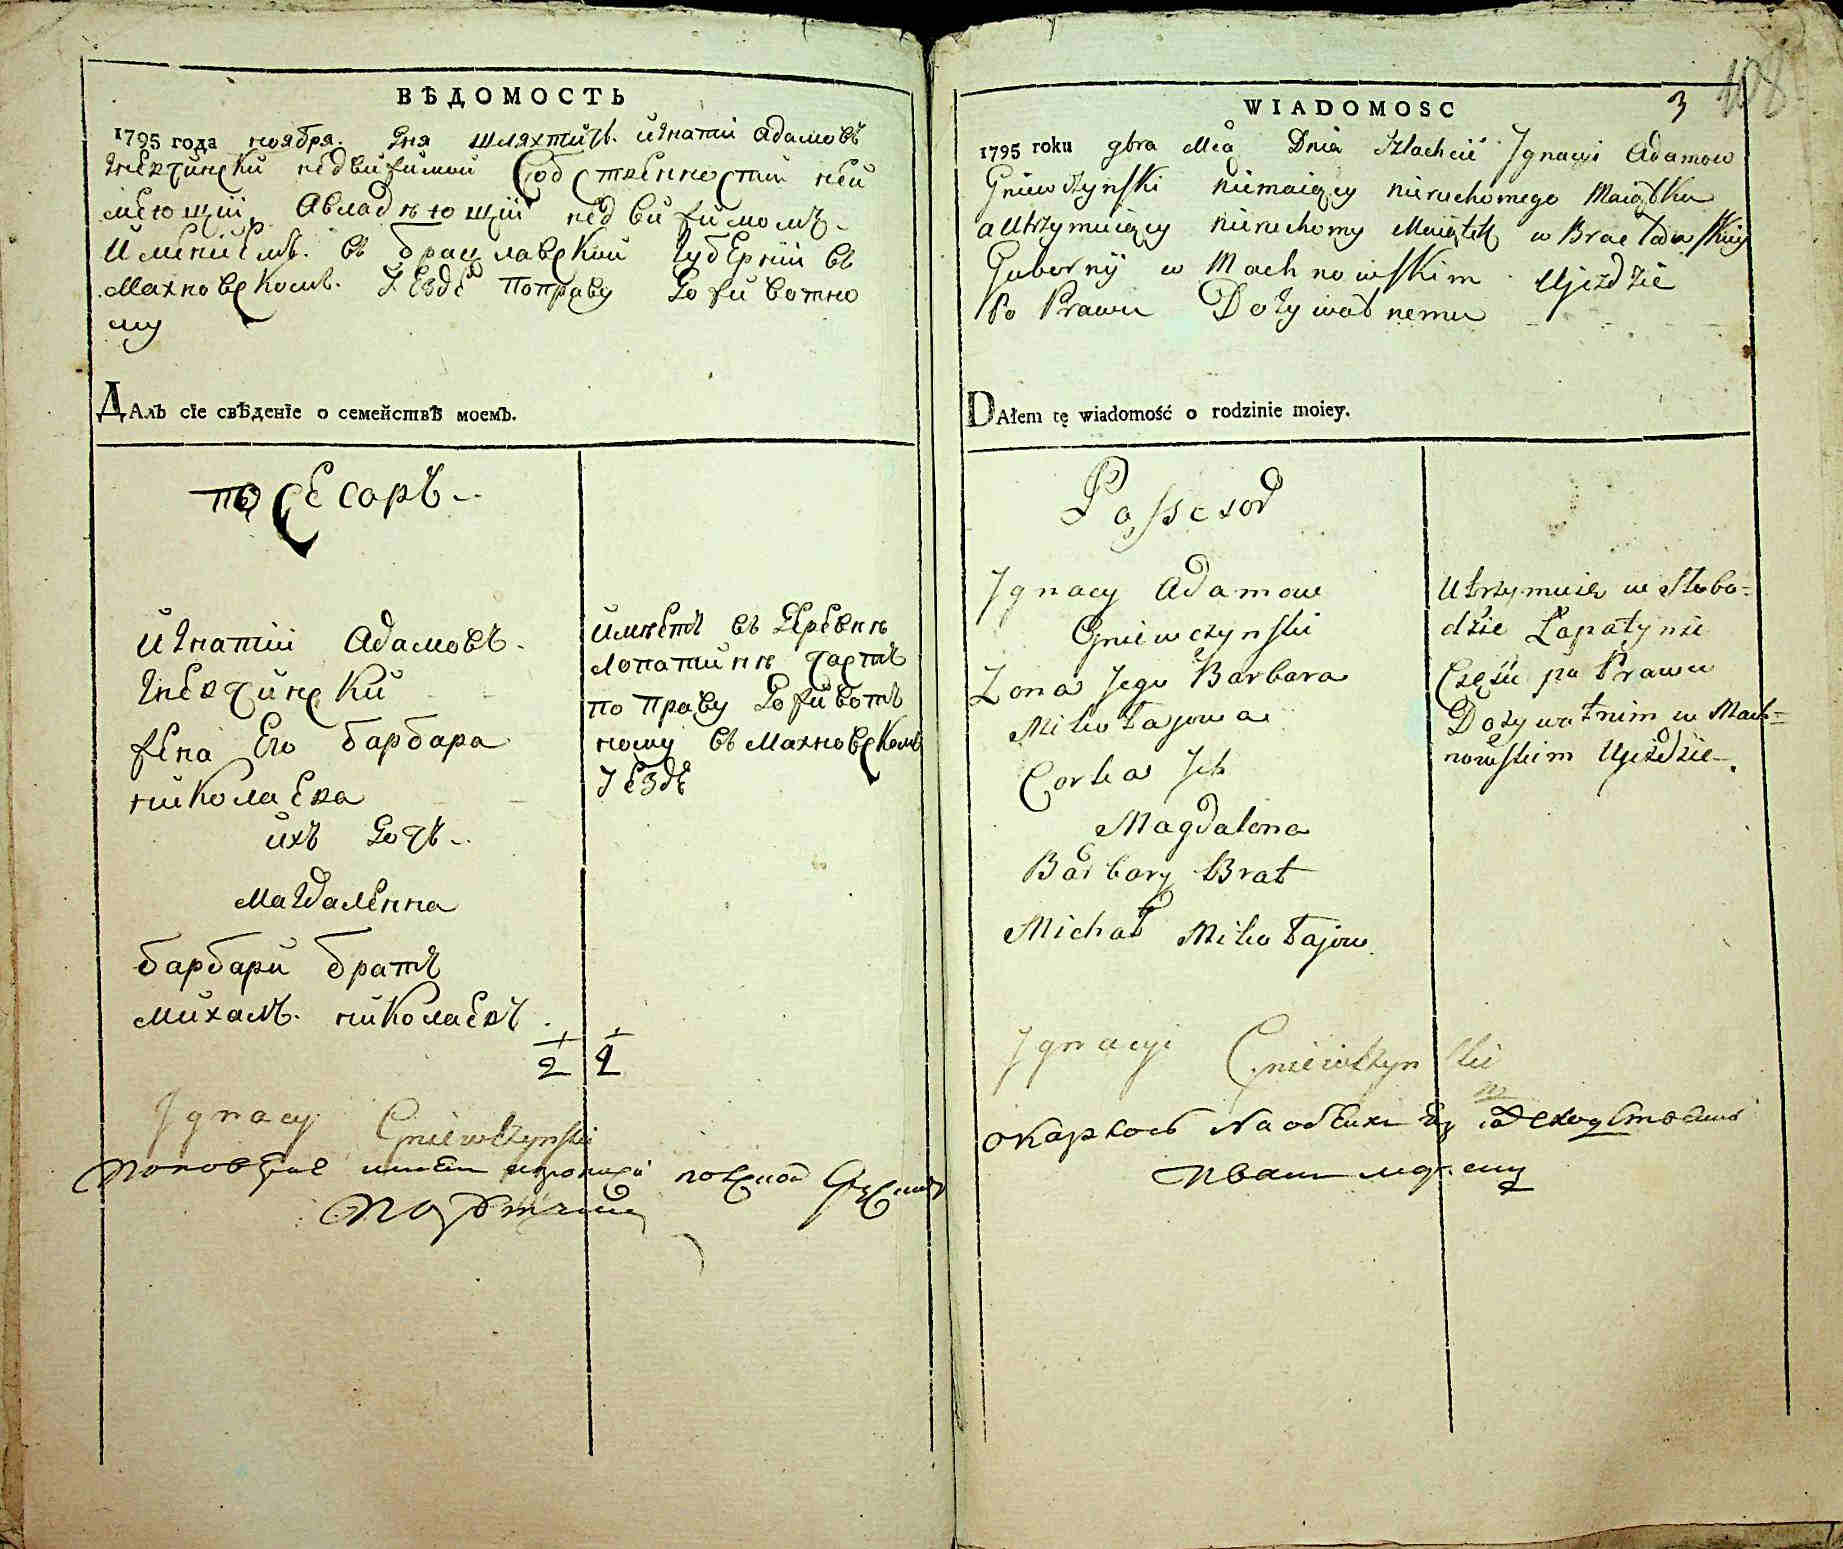 ВѢДОМОСТЬ
1795 года ноября дня шляхтичъ игнатий адамовъ
гневчинский недвижимой собственности неи
меющий авладѣющий недвижимомъ
имениемъ въ брацлавской губернии въ
махновскомъ уезде поправу доживотно
му
Далъ сіе свѣденіе о семействѣ моемъ.
посесоръ
игнатий адамовъ
гневчинский
жена его барбара
николаева
ихъ дочь
магдаленна
барбари братъ
михалъ николаевъ
имѣетъ въ деревнѣ
лопатинѣ часть
по праву доживотъ
ному въ махновскомъ
уездѣ
1 1
2 2
Jgnacy Gniewczynski
WIADOMOSC
3 108
1795 roku 9bra Mca Dnia Szlachcic Jgnacy Adamow
Gniewczynski niemaiący nieruchomego Maiątku
a Utrzymuiący nieruchomy Maiątek w Bracławskiy
Gubernij w Machnowskim Ujezdzie
Po Prawu Dożywotnemu
DAłem tę wiadomość o rodzinie moiey.
Possesor
Jgnacy Adamow
Gniewczynski
Zona Jego Barbara
Mikołajowa
Corka Jch
Magdalena
Barbary Brat
Michał Mikołajow
Utrzymuie w Słobo-
dzie Łapatynie
Częsc po Prawu
Dożywotnim w Mach-
nowskim Ujezdzie
Jgnacyi Gniewczynski